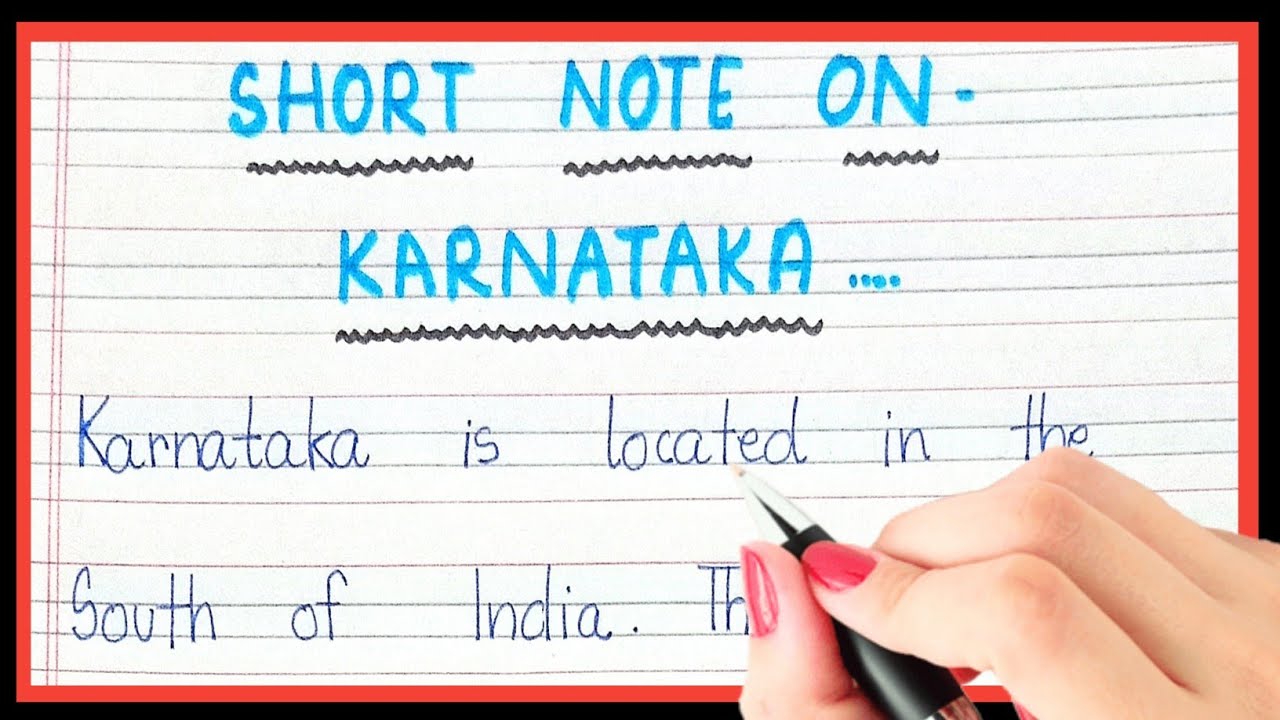 SHORT NOTE ON-
KARNATAKA ....
Karnataka is located in the
South of India.